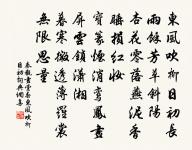 東風吹柳日初長
雨餘芳草斜陽
杏花零落燕泥香
睡損紅妝
寶篆煙消鸞鳳畫
屏雲鎖瀟湘
暮寒微透薄羅裳
無限思量
秦觀畫堂春東風吹柳
日初